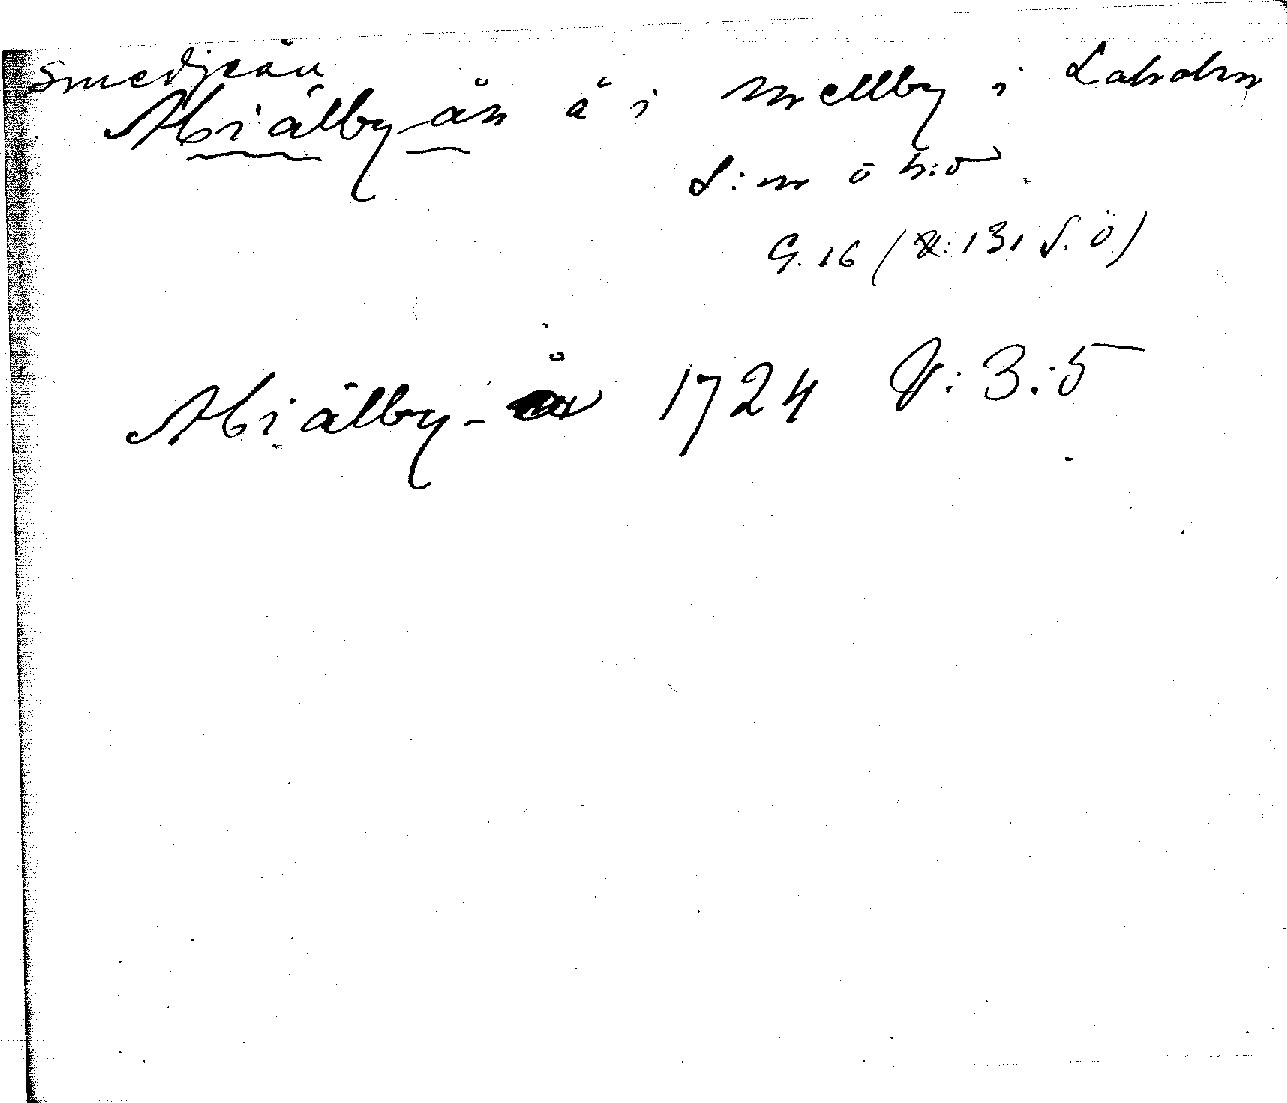 Smedjeån
Miälby-ån å i Mellby i Laholm
S:m ö h:d
G. 16 (X: 131 S. Ö)
Miälby-å 1724 V: 3:5